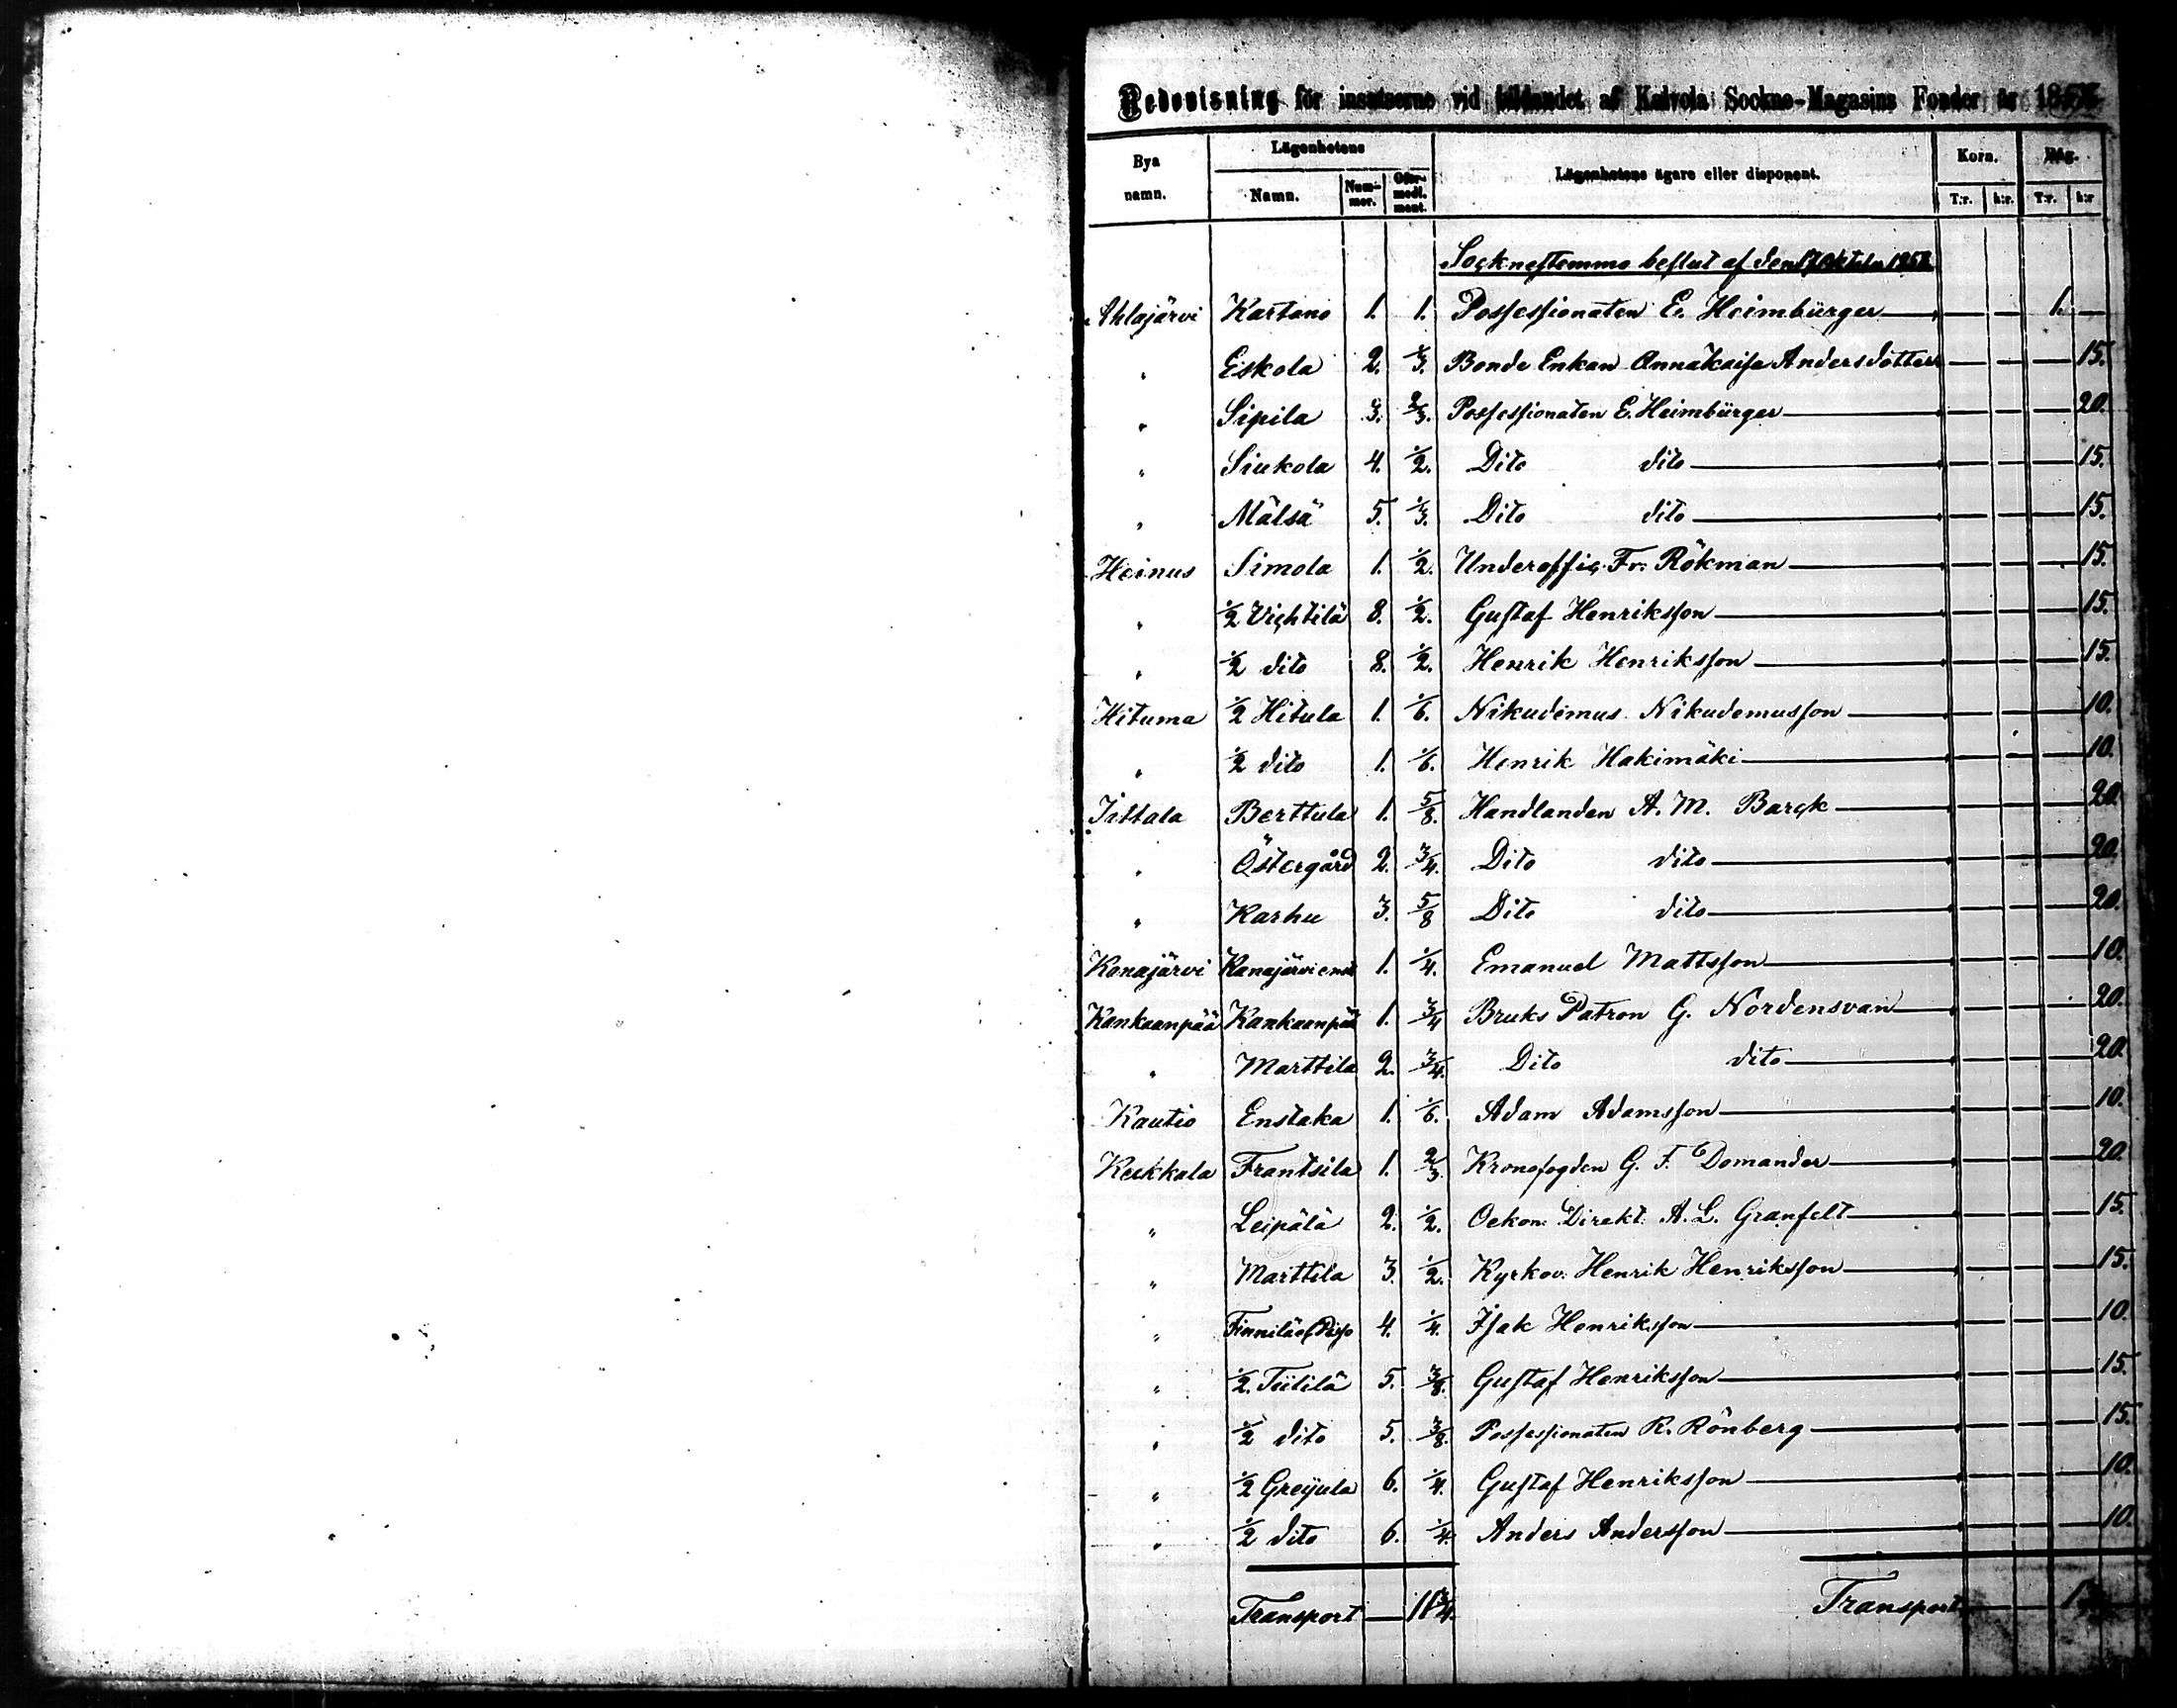 Redovisning för insatserne vid bildandet af Kalvola Sockne-Magasins Fonder år 185
Bya namn. Lägenhetens Lägenhetens ägare eller disponent. Korn. Råg.
Namn. Nummer. Öfvermedl. mant. T:r. k:r. T:r. k:r
Socknestemmo beslut af den
Ahlajärvi Kartano 1. 1. Possessionaten E. Heimbürger — — 1. —
" Eskola 2. 1/3. Bonde Enkan Annakaisa Andersdotter — — — 15.
" Sipila 3. 2/3. Possessionaten E. Heimbürger — — — 20.
" Siukola 4. 1/2. Dito dito — — — 15.
" Mälsä 5. 1/3. Dito dito — — — 15.
Heinus Simola 1. 1/2. Underoffic. Fr. Rökman — — — 15.
" 1/2 Vichtilä 8. 1/2. Gustaf Henriksson — — — 15.
" 1/2 dito 8. 1/2. Henrik Henriksson — — — 15.
Hituma 1/2 Hitula 1. 1/6. Nikudemus Nikudemusson — — — 10.
" 1/2 dito 1. 1/6. Henrik Hakimäki — — — 10.
Iittala Berttula 1. 5/8. Handlanden A. M. Barck — — — 20.
" Östergård 2. 3/4. Dito dito — — — 20.
" Karhu 3. 5/8 Dito dito — — — 20.
Kanajärvi Kanajärvi enst 1. 1/4. Emanuel Mattsson — — — 10.
Kankaanpää Kankaanpää 1. 3/4 Bruks Patron G. Nordensvan — — — 20.
" Marttila 2. 3/4. Dito dito — — — 20.
Kautio Enstaka 1. 1/6. Adam Adamsson — — — 10.
Keikkala Frantsila 1. 2/3. Kronofogden G. F. Domander — — — 20.
" Leipälä 2. 1/2. Oekon. Direkt. A. L. Granfelt — — — 15.
" Marttila 3. 1/2. Kyrkov. Henrik Henriksson — — — 15.
" Finnilä 4. 1/4. Isak Henriksson — — — 10.
" 1/2 Tiitilä 5. 3/8. Gustaf Henriksson — — — 15.
" 1/2 dito 5. 3/8. Possessionaten R. Rönberg — — — 15.
" 1/2 Greijula 6. 1/4. Gustaf Henriksson — — — 10.
" 1/2 dito 6. 1/4. Anders Andersson — — — 10.
Transport — 11 3/4. Transport — —